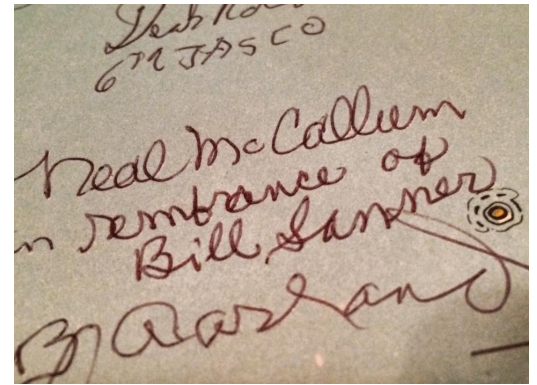 6TH JASCO
Neal McCallum
in rembrance of
Bill Sanner